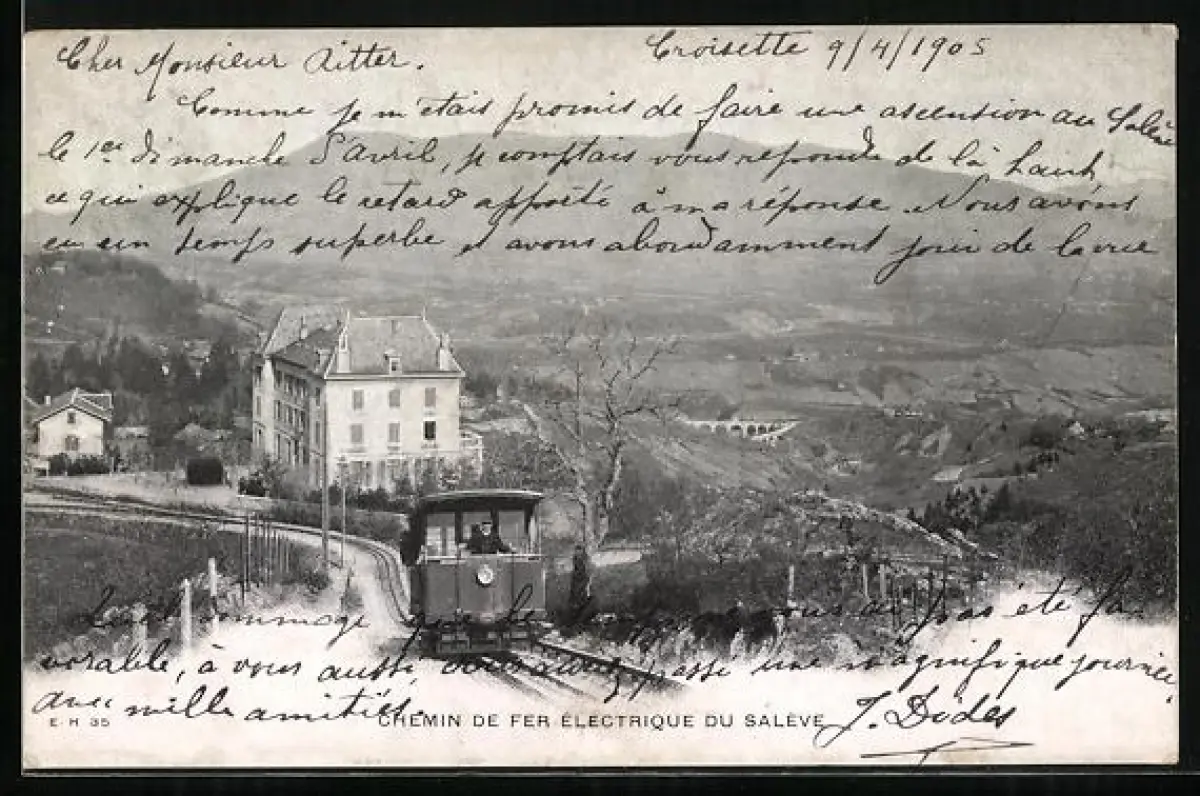 Croisette 9/4/1905
Cher Monsieur Ritter.
Comme je m'étais promis de faire une ascension au Salève
le 1er dimanche d'Avril, je comptais vous répondre de là haut,
ce qui explique le retard apporté à ma réponse. Nous avons
eu un temps superbe et avons abondamment joui de la vue
dommage que le temps ne vous ait pas été fa-
vorable, à vous aussi, vous passé une magnifique journée,
avec mille amitiés.
J. Dides
E. H 35
CHEMIN DE FER ÉLECTRIQUE DU SALÈVE